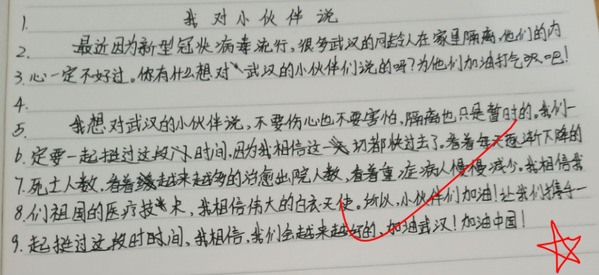 1. 我对小伙伴说
2. 最近因为新型冠状病毒流行，很多武汉的同龄人在家里隔离，他们的内
3. 心一定不好过。你有什么想对武汉的小伙伴们说的呀？为他们加油打气呗吧！
4.
5. 我想对武汉的小伙伴说，不要伤心也不要害怕，隔离也只是暂时的。我们一
6. 定要一起挺过这段时间，因为我相信这一切都快过去了。看着每天逐渐下降的
7. 死亡人数，看着越来越多的治愈出院人数，看着重症病人慢慢减少。我相信我
8. 们祖国的医疗技术，我相信伟大的白衣天使。所以，小伙伴们加油！让我们携手一
9. 起挺过这段时时间，我相信，我们会越来越好的，加油武汉！加油中国！